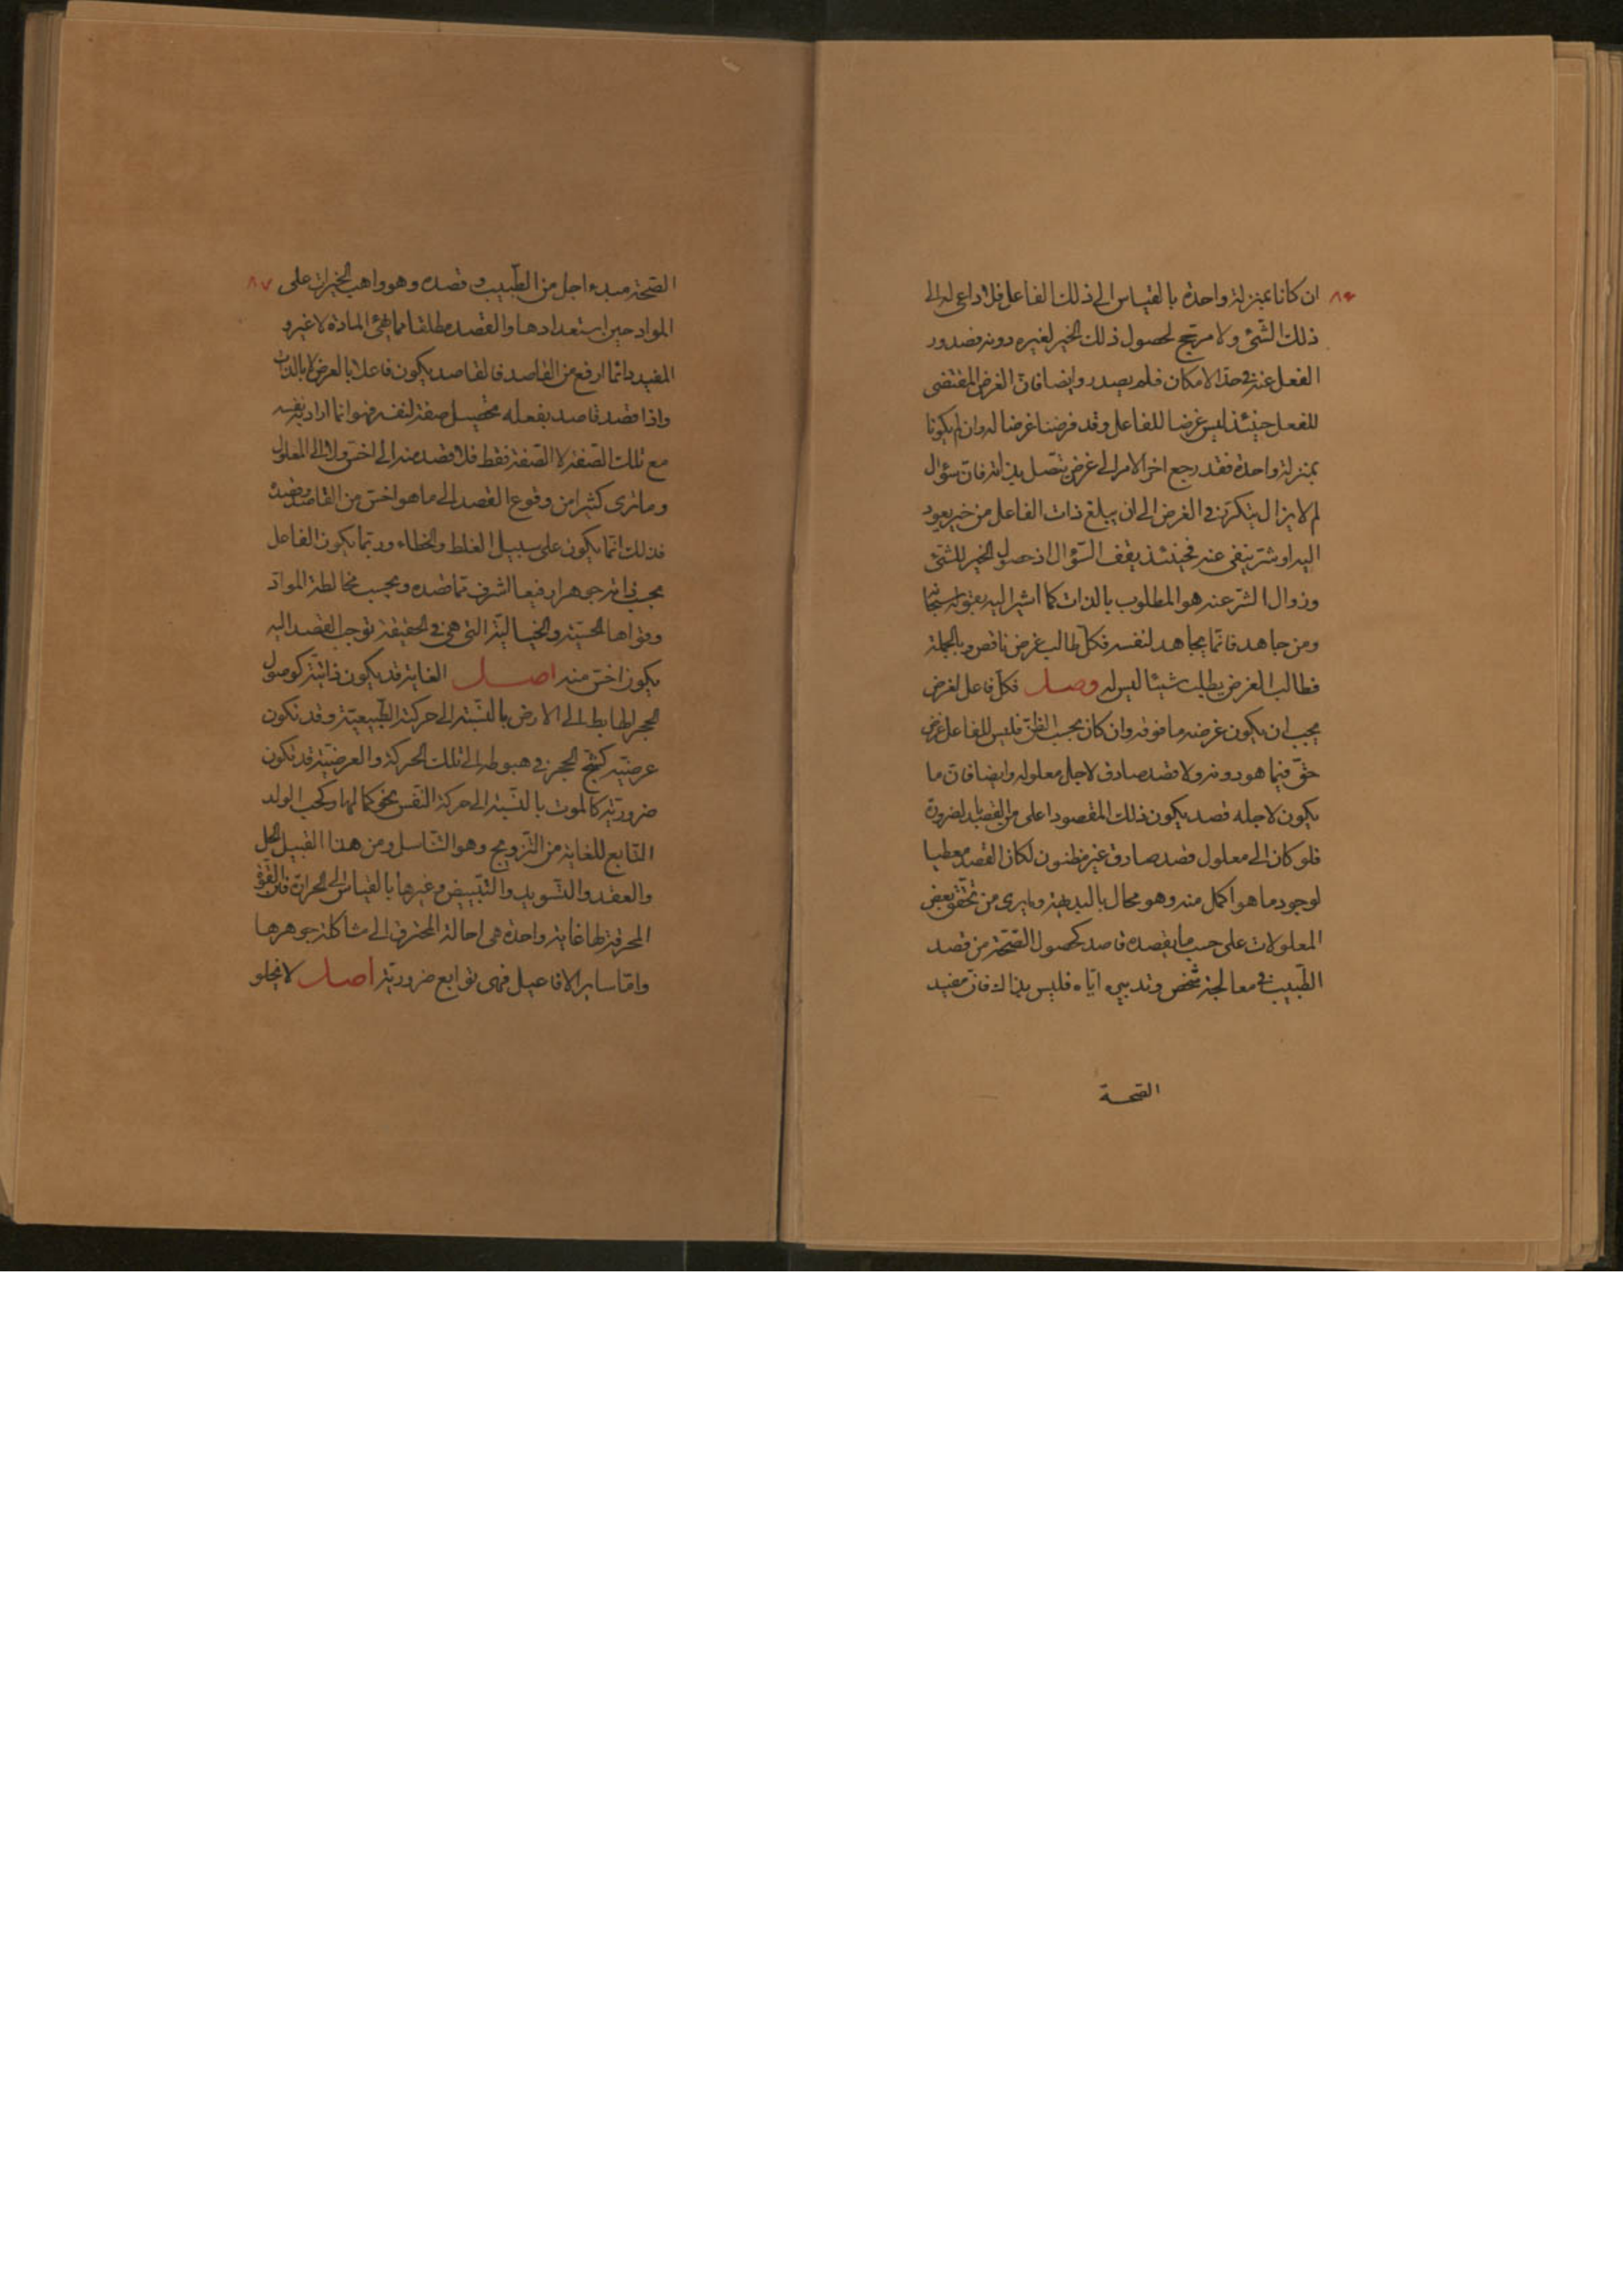 ٨٦ ان كانا بمنزلة واحدة بالقياس الى ذلك الفاعل فلا داعى له الى
ذلك الشّئ ولا مرجّح لحصول ذلك الخير لغيره دونه فصدور
الفعل عنه فى حدّ الامكان فلم يصدر وايضا فانّ الغرض المقتضى
للفعل حينئذ ليس غرضا للفاعل وقد فرضنا غرضا له وان لم يكونا
بمنزلة واحدة فقد رجع اخر الامر الى غرض يتّصل بذاته فانّ سؤال
لم لا يزال يتكرّر فى الغرض الى ان يبلغ ذات الفاعل من خير يعود
اليه او شرّ ينفى عنه فحينئذ يقف السّؤال اذ حصول الخير للشّئ
وزوال الشّر عنه هو المطلوب بالذات كما اشير اليه بقوله سبحانه
ومن جاهد فانّما يجاهد لنفسه فكلّ طالب غرض ناقص وبالجملة
فطالب الغرض يطلب شيئا ليس له وصل فكلّ فاعل لغرض
يجب ان يكون غرضه ما فوقه وان كان بحسب الظّنّ فليس للفاعل غرض
حقّ فيما هو دونه ولا قصد صادق لاجل معلوله وايضا فانّ ما
يكون لاجله قصد يكون ذلك المقصود اعلى من القصد بالضرورة
فلو كان الى معلول قصد صادق غير مظنون لكان القصد معطيا
لوجود ما هو اكمل منه وهو محال بالبديهة وما يرى من تحقّق بعض
المعلولات على حسب ما يقصده قاصد كحصول الصّحّة من قصد
الطّبيب فى معالجة شخص وتدبيره ايّاه فليس بذاك فانّ مفيد
الصّحة
الصّحة مبدء اجل من الطّبيب وقصده وهو واهب الخيرات على ٨٧
المواد حين استعدادها والقصد مطلقا مما يهيّئ المادة لا غير و
المفيد دائما ارفع من القاصد فالقاصد يكون فاعلا بالعرض لا بالذات
واذا قصد قاصد بفعله تحصيل صفة لنفسه فهو انما اراد به نفسه
مع تلك الصّفة لا الصّفة فقط فلا قصد منه الى اخسّ ولا الى المعلول
وما ترى كثيرا من وقوع القصد الى ما هو اخسّ من القاصد وقصده
فذلك انّما يكون على سبيل الغلط والخطاء وربّما يكون الفاعل
بحسب ذاته جوهرا رفيعا اشرف ممّا قصده وبحسب مخالطة الموادّ
وقواها الحسّيّة والخياليّة الّتى هى فى الحقيقة توجب القصد اليه
يكون اخسّ منه اصل الغاية قد يكون ذاتيّة كوصول
الحجر الهابط الى الارض بالنّسبة الى حركته الطّبيعيّة وقد تكون
عرضيّة كشجّ الحجر فى هبوطه الى تلك الحركة والعرضيّة قد تكون
ضروريّة كالموت بالنّسبة الى حركة النّفس نحو كمالها وكحبّ الولد
التّابع للغاية من التّزويج وهو التّناسل ومن هذا القبيل الحلّ
والعقد والتّسويد والتّبييض وغيرها بالقياس الى الحرارة فانّ القوّة
المحرقة لها غاية واحدة هى احالة المحترق الى مشاكلة جوهرها
وامّا ساير الافاعيل فهى توابع ضروريّة اصل لا يخلو